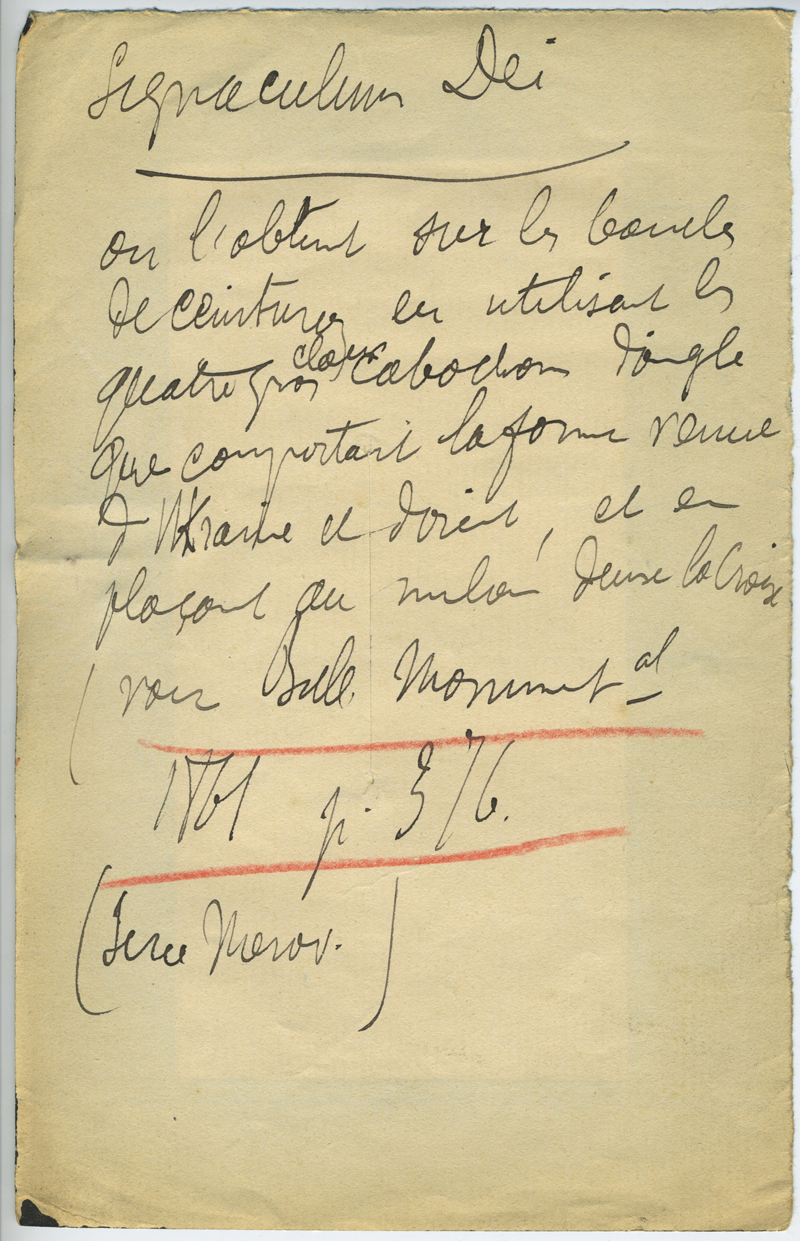 Signaculum Dei
on l'obtient sur les boucles
de ceintures en utilisant les
quatre gros clous cabochons d'angle
que comportait la forme venue
d'Ukraine et d'orient, et en
plaçant au milieu d'eux la Croix
(voir Bull. Monument al
1861 p. 376.
(Serie Merov.)